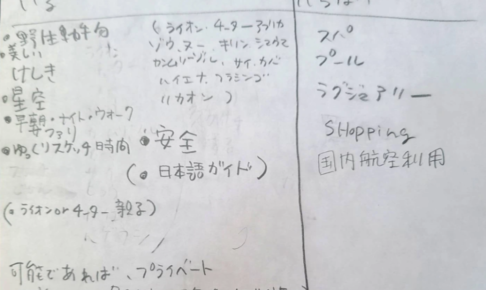 いる
・野生動物
(ライオン・チーター・アフリカ
ゾウ・ヌー・キリン シマウマ
ガゼル、サイ、カバ
ハイエナ、フラミンゴ
リカオン )
・美しい
けしき
・星空
・早朝・ナイト・ウォーク
サファリ
・ゆっくりスケッチ時間
・安全
(・日本語ガイド)
(・ライオンorチーター 親子)
可能であれば、プライベート
スパ
プール
ラグジュアリー
Shopping
国内航空利用